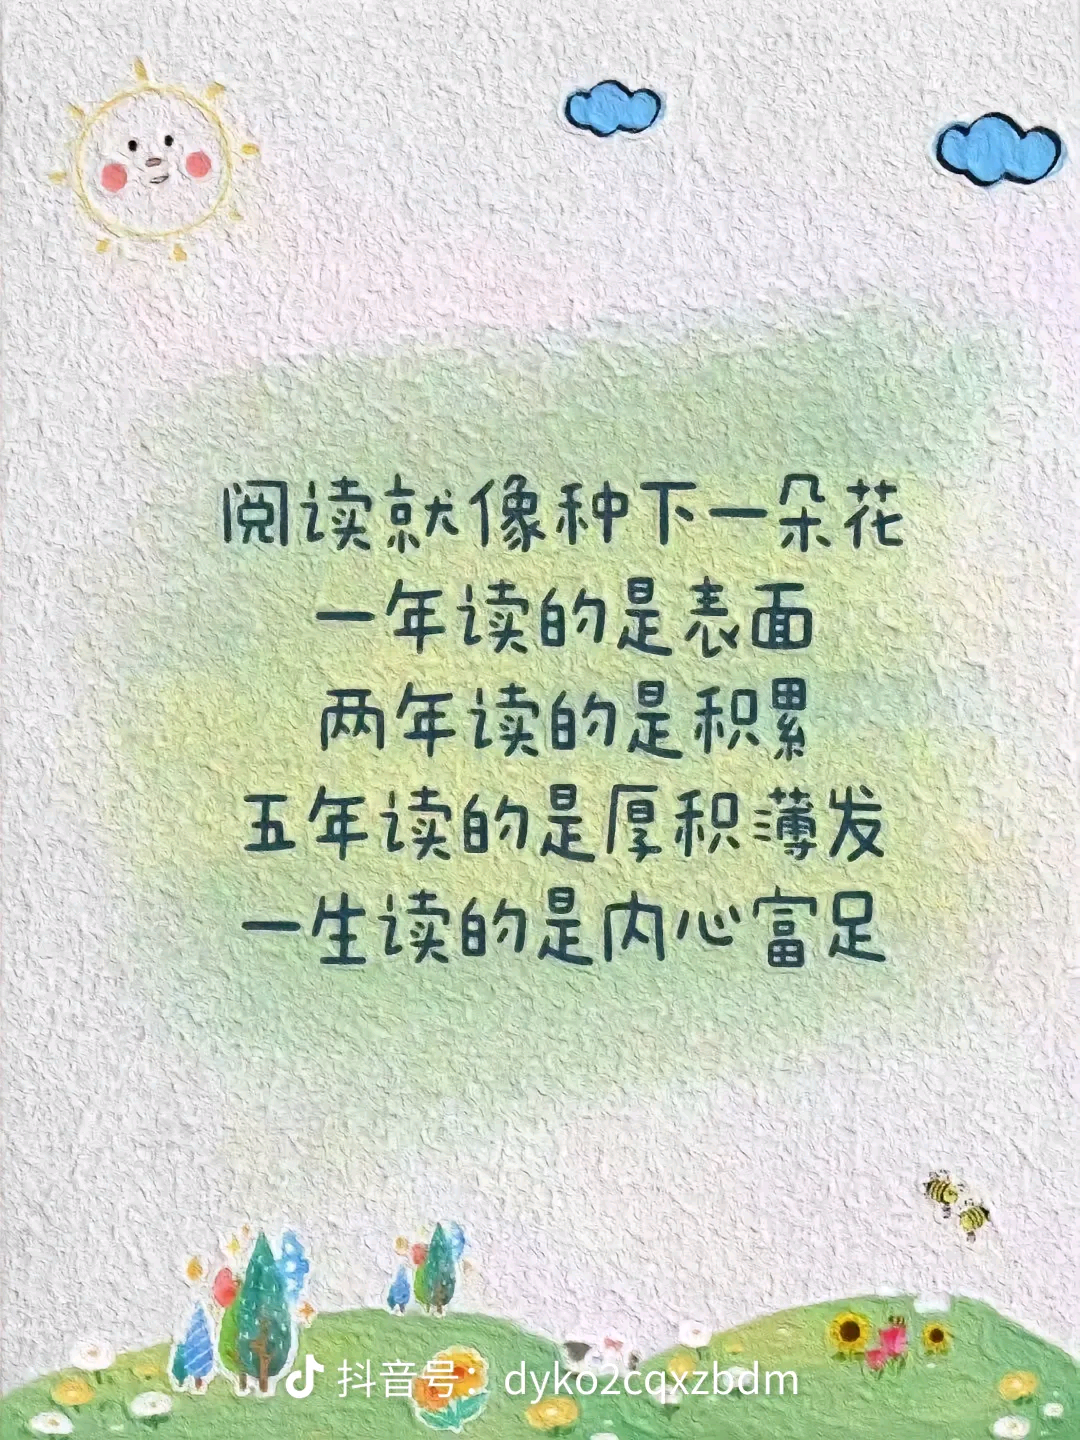 阅读就像种下一朵花
一年读的是表面
两年读的是积累
五年读的是厚积薄发
一生读的是内心富足
抖音号：dyko2cqxzbdm